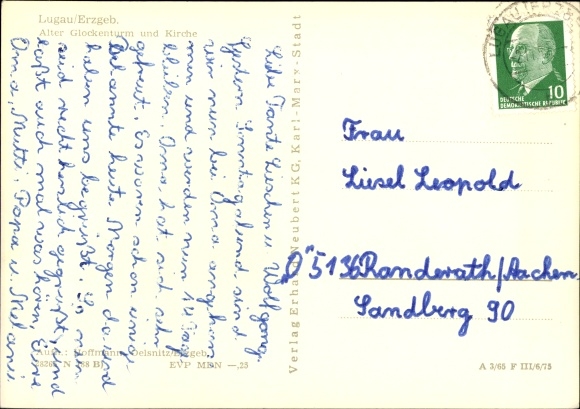 Lugau/Erzgeb.
Alter Glockenturm und Kirche
Liebe Tante Lieschen u. Wolfgang.
Gestern Sonntagabend sind
wir nun bei Oma angekom
men und werden nun 14 Tage
bleiben. Oma hat sich sehr
gefreut. Es waren schon einige
Bekannte heute Morgen da und
haben uns begrüßt. So nun
seid recht herzlich gegrüßt, und
laßt auch mal was hören, Eure
Oma, Mutti, Papa u. Melanie
Aufn.: Hoffmann, Oelsnitz/Erzgeb.
EVP MDN —,25
Verlag Erhard Neubert KG, Karl-Marx-Stadt
LUGAU (ERZGEB)
10
DEUTSCHE
DEMOKRATISCHE REPUBLIK
Frau
Liesel Leopold
"D" 5136 Randerath/Aachen
Sandberg 90
A 3/65 F III/6/75